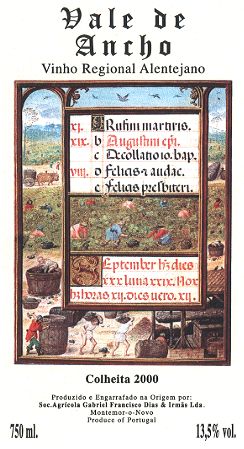 Vale de
Ancho
Vinho Regional Alentejano
xj. Rufini martiris.
xix. b Augustini epi.
c Decollatio io. bap.
viij. d felicis z audac.
e felicis presbiteri.
September hz dies
xxx luna xxix. Nox
hz horas xij. dies vero. xij.
Colheita 2000
Produzido e Engarrafado na Origem por:
Soc.Agrícola Gabriel Francisco Dias & Irmãs Lda.
Montemor-o-Novo
Produce of Portugal
750 ml. 13,5% vol.